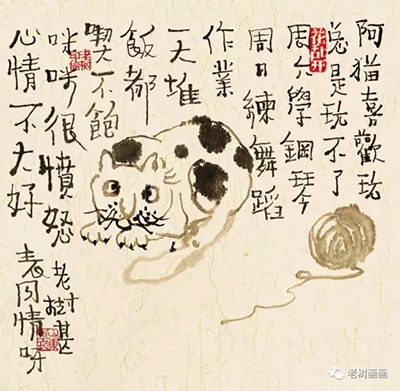 阿猫喜歡玩
总是玩不了
周六學鋼琴
周日練舞蹈
作業
一大堆
飯都
喫不飽
咪咪很憤怒
心情不大好
老树甚
表同情呀
老树画画